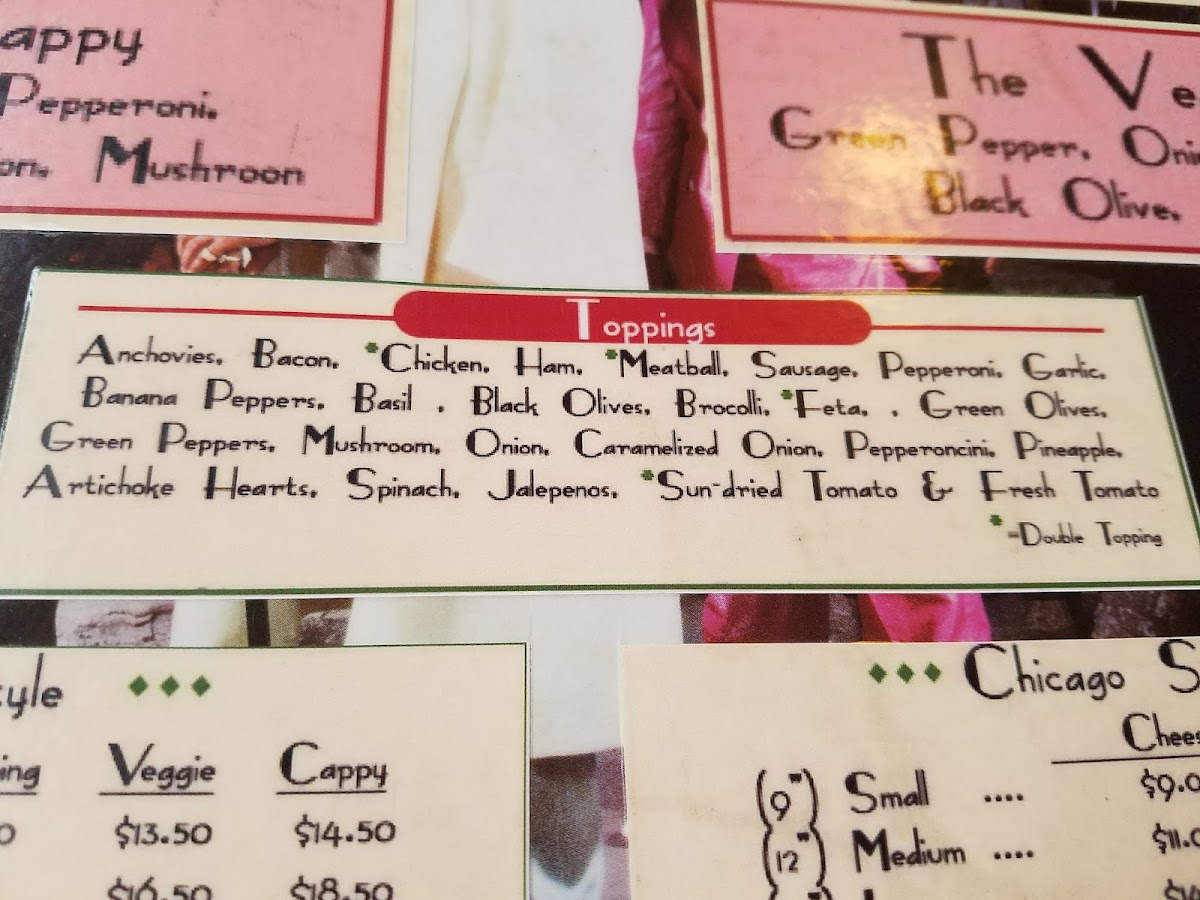 appy
Pepperoni.
on. Mushroon
The Ve
Green Pepper. Oni
Black Olive.
Toppings
Anchovies. Bacon. *Chicken. Ham. *Meatball. Sausage. Pepperoni. Garlic.
Banana Peppers. Basil . Black Olives. Brocolli. *Feta. . Green Olives.
Green Peppers. Mushroom. Onion. Caramelized Onion. Pepperoncini. Pineapple.
Artichoke Hearts. Spinach. Jalepenos. *Sun-dried Tomato & Fresh Tomato
*=Double Topping
tyle ♦♦♦
ing Veggie Cappy
0 $13.50 $14.50
$16.50 $18.50
♦♦♦ Chicago S
Chees
(9") Small .... $9.0
(12") Medium .... $11.0